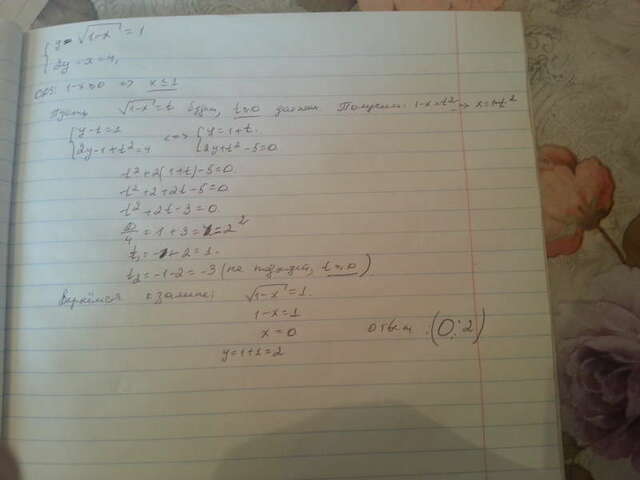 { y - √1-x = 1
{ 2y - x = 4,
ОДЗ: 1-x ≥ 0 => x ≤ 1
Пусть √1-x = t будет, t ≥ 0 должен. Получим: 1-x = t² => x = 1-t²
{ y - t = 1 <=> { y = 1+t.
{ 2y - 1 + t² = 4 { 2y + t² - 5 = 0.
t² + 2(1+t) - 5 = 0.
t² + 2 + 2t - 5 = 0.
t² + 2t - 3 = 0.
D/4 = 1 + 3 = 2²
t₁ = -1 + 2 = 1.
t₂ = -1 - 2 = -3 (не подходит, t ≥ 0)
Вернёмся к замене: √1-x = 1.
1-x = 1
x = 0 ответ: (0; 2)
y = 1+1 = 2